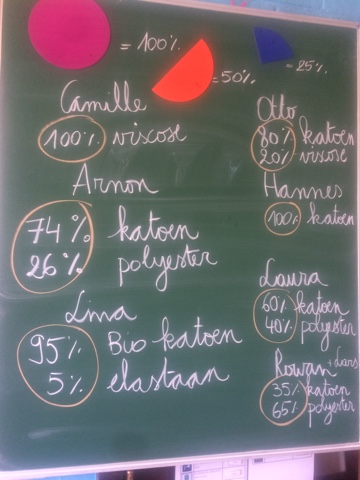 = 100%
= 50%
= 25%
Camille
100% viscose
Arnon
74% katoen
26% polyester
Lina
95% Bio katoen
5% elastaan
Otto
80% katoen
20% viscose
Hannes
100% katoen
Laura
60% katoen
40% polyester
Rowan + Lars
35% katoen
65% polyester